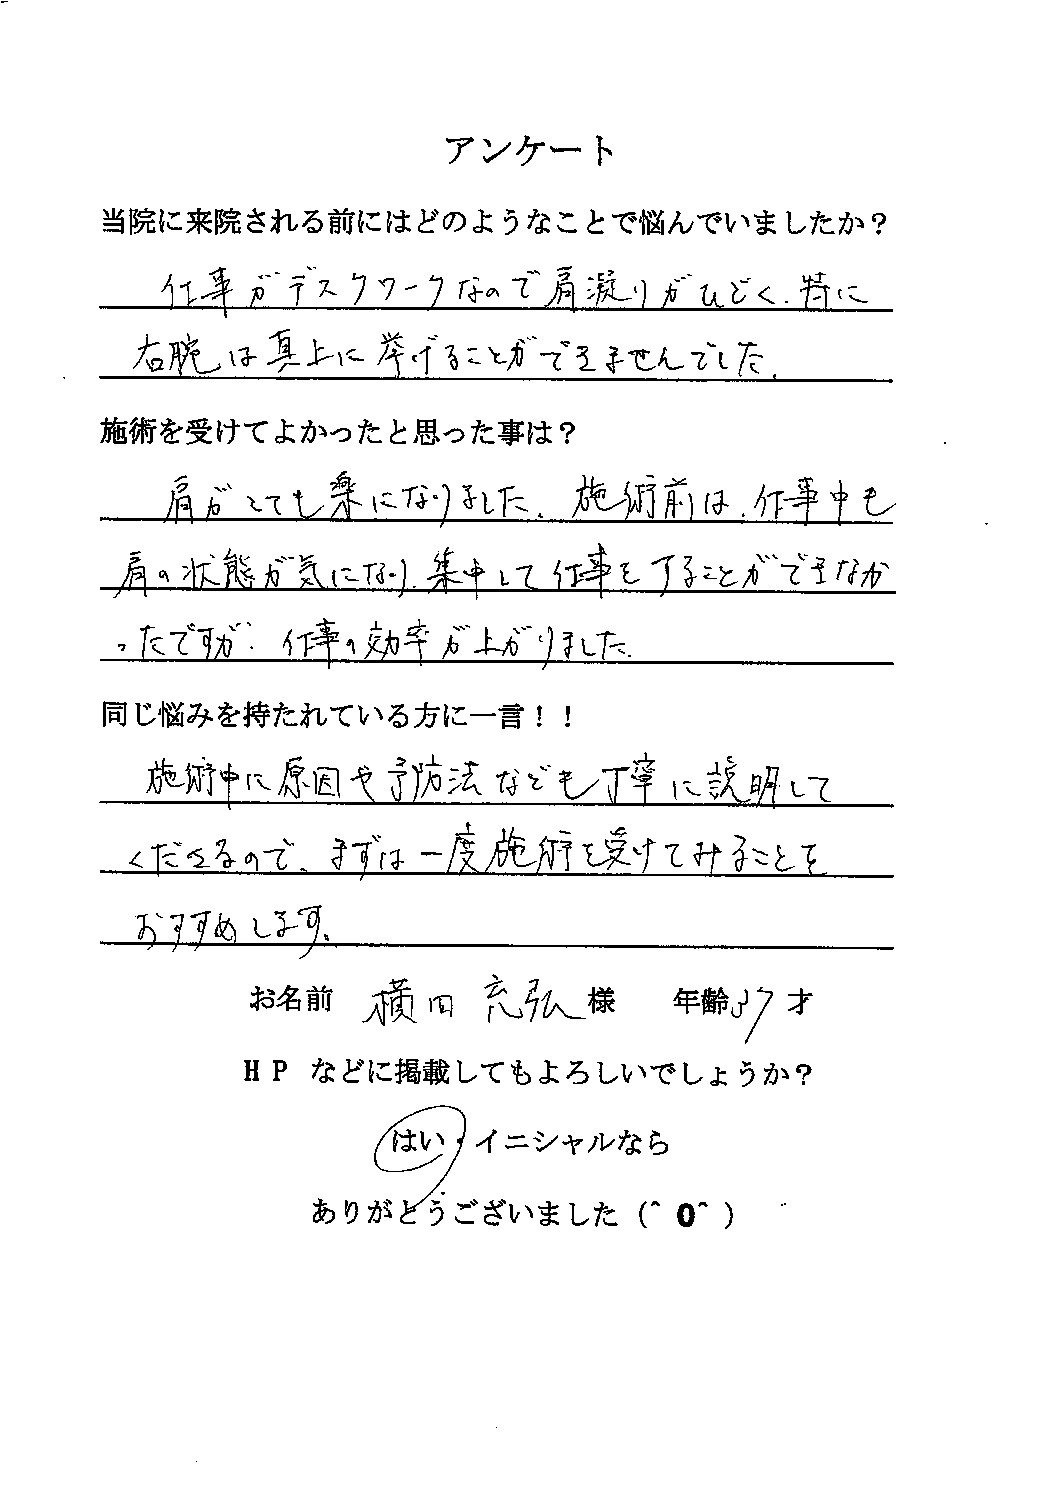 アンケート
当院に来院される前にはどのようなことで悩んでいましたか？
仕事がデスクワークなので肩凝りがひどく、特に
右腕は真上に挙げることができませんでした。
施術を受けてよかったと思った事は？
肩がとても楽になりました。施術前は、仕事中も
肩の状態が気になり、集中して仕事をすることができなか
ったですが、仕事の効率が上がりました。
同じ悩みを持たれている方に一言！！
施術中に原因や予防法なども丁寧に説明して
くださるので、まずは一度施術を受けてみることを
おすすめします。
お名前 横田 充弘 様 年齢 37 才
ＨＰ などに掲載してもよろしいでしょうか？
はい・イニシャルなら
ありがとうございました（＾０＾）